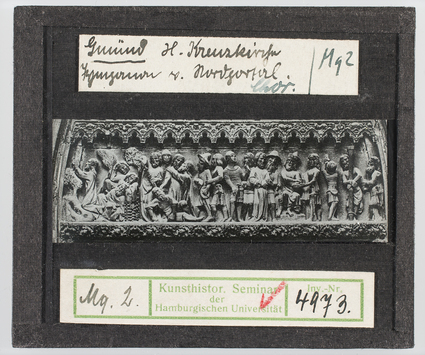 Gmünd H. Kreuzkirche
v. Nordportal.
Chor.
Mg2
Mg. 2.
Kunsthistor. Seminar
der
Hamburgischen Universität
Inv.-Nr.
4973.